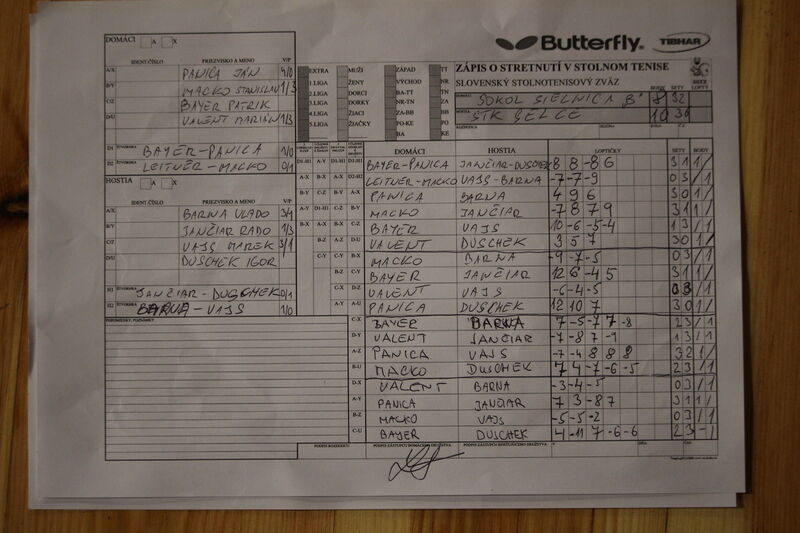 Butterfly. TIBHAR
DOMÁCI A X
IDENT. ČÍSLO PRIEZVISKO A MENO V/P
A/X PANICA JÁN 4/0
B/Y MACKO STANISLAV 1/3
C/Z BAYER PATRIK
D/U VALENT MARIÁN 1/3
D1 BAYER-PANICA 1/0
D2 LEITNER-MACKO 0/1
HOSTIA A X
IDENT. ČÍSLO PRIEZVISKO A MENO V/P
A/X BARNA VLADO 3/1
B/Y JANČIAR RADO 1/3
C/Z VAJS MAREK 3/1
D/U DUSCHEK IGOR
H1 ŠTVORHRA JANČIAR-DUSCHEK 0/1
H2 ŠTVORHRA BARNA-VAJS 1/0
PRIPOMIENKY, POZNÁMKY
EXTRA MUŽI ZÁPAD TT
1.LIGA ŽENY VÝCHOD NR
2.LIGA DORCI BA-TT TN
3.LIGA DORKY NR-TN ZA
4.LIGA ŽIACI ZA-BB BB
5.LIGA ŽIAČKY PO-KE PO
BA KE
ZÁPIS O STRETNUTÍ V STOLNOM TENISE
SLOVENSKÝ STOLNOTENISOVÝ ZVÄZ
BODY SETY LOPTY
DOMÁCI SOKOL SIELNICA "B" 8 32
HOSTIA STK SELCE 10 36
ROZHODCA
DOMÁCI HOSTIA LOPTIČKY SETY BODY
D1-H1 BAYER-PANICA JANČIAR-DUSCHEK 8 8 -8 6 3 1 1/
D2-H2 LEITNER-MACKO VAJS-BARNA -7 -7 -9 0 3 /1
A-X PANICA BARNA 4 9 6 3 0 1/
B-Y MACKO JANČIAR -7 8 7 9 3 1 1/
C-Z BAYER VAJS 10 -6 -5 -4 1 3 /1
D-U VALENT DUSCHEK 3 5 7 3 0 1/
B-X MACKO BARNA -9 -7 -5 0 3 /1
C-Y BAYER JANČIAR 12 6 -4 5 3 1 1/
D-Z VALENT VAJS -6 -4 -5 0 3 /1
A-U PANICA DUSCHEK 12 10 7 3 0 1/
C-X BAYER BARNA 7 -5 -7 7 -8 2 3 /1
D-Y VALENT JANČIAR -7 -8 7 -9 1 3 /1
A-Z PANICA VAJS -7 -4 8 8 8 3 2 1/
B-U MACKO DUSCHEK 7 4 -7 -6 -5 2 3 /1
D-X VALENT BARNA -3 -4 -5 0 3 /1
A-Y PANICA JANČIAR 7 3 -8 7 3 1 1/
B-Z MACKO VAJS -5 -5 -2 0 3 /1
C-U BAYER DUSCHEK 4 -11 7 -6 -6 2 3 -/1
PODPIS ROZHODCU PODPIS ZÁSTUPCU DOMÁCEHO DRUŽSTVA PODPIS ZÁSTUPCU HOSŤUJÚCEHO DRUŽSTVA